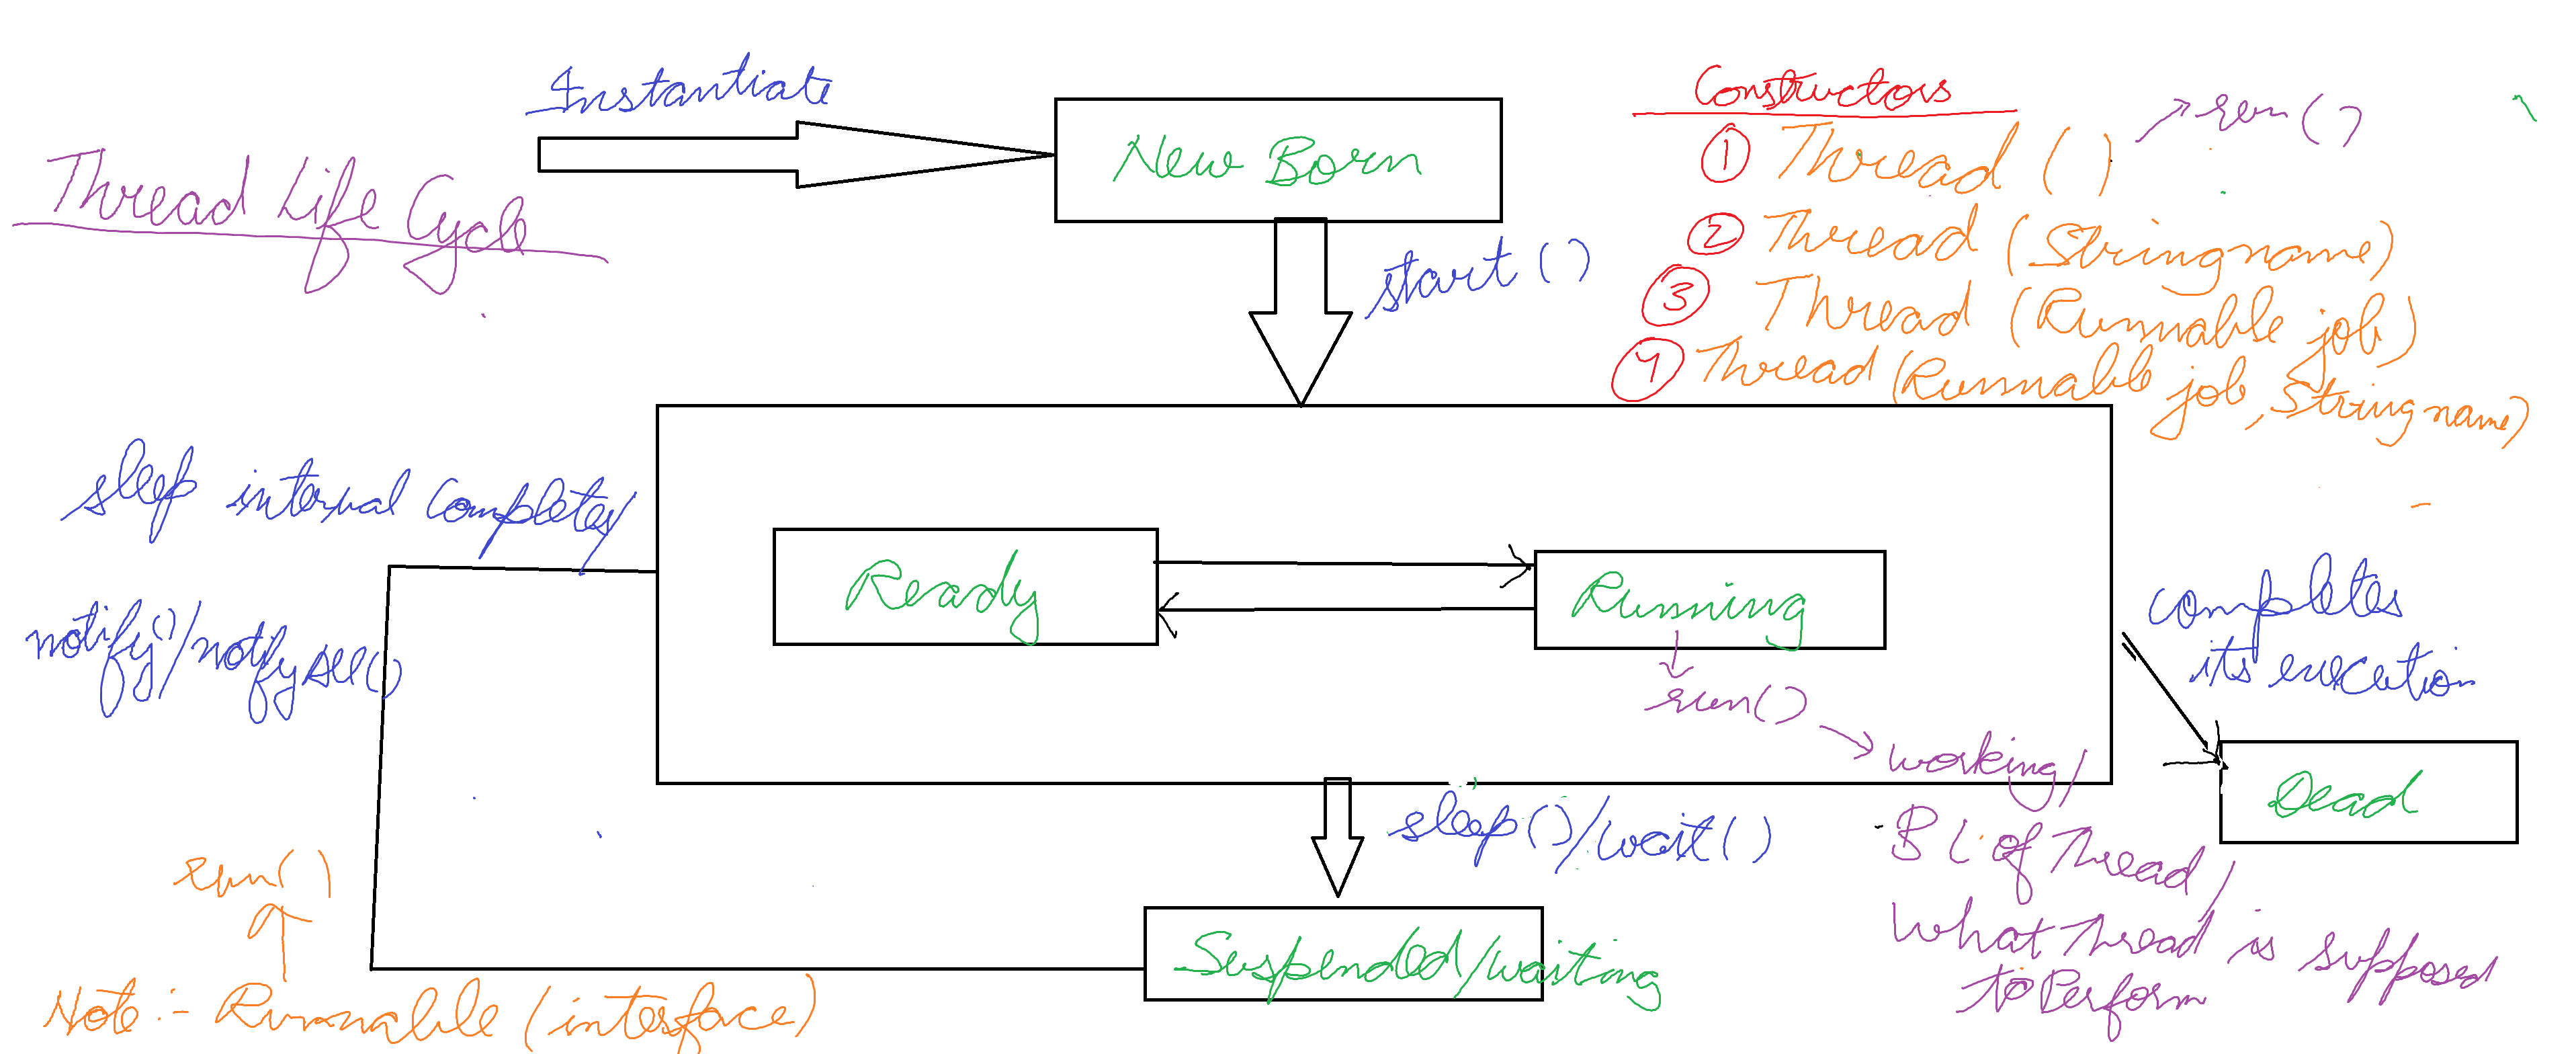 Thread Life Cycle
Instantiate
New Born
start()
Constructors
① Thread ()
→ run()
② Thread (String name)
③ Thread (Runnable job)
④ Thread (Runnable job, String name)
sleep interval completes/
notify()/notifyAll()
Ready
Running
run()
working/
BL of Thread/
What Thread is supposed
to Perform
completes
its execution
Dead
sleep()/wait()
Suspended/waiting
run()
Note :- Runnable (interface)